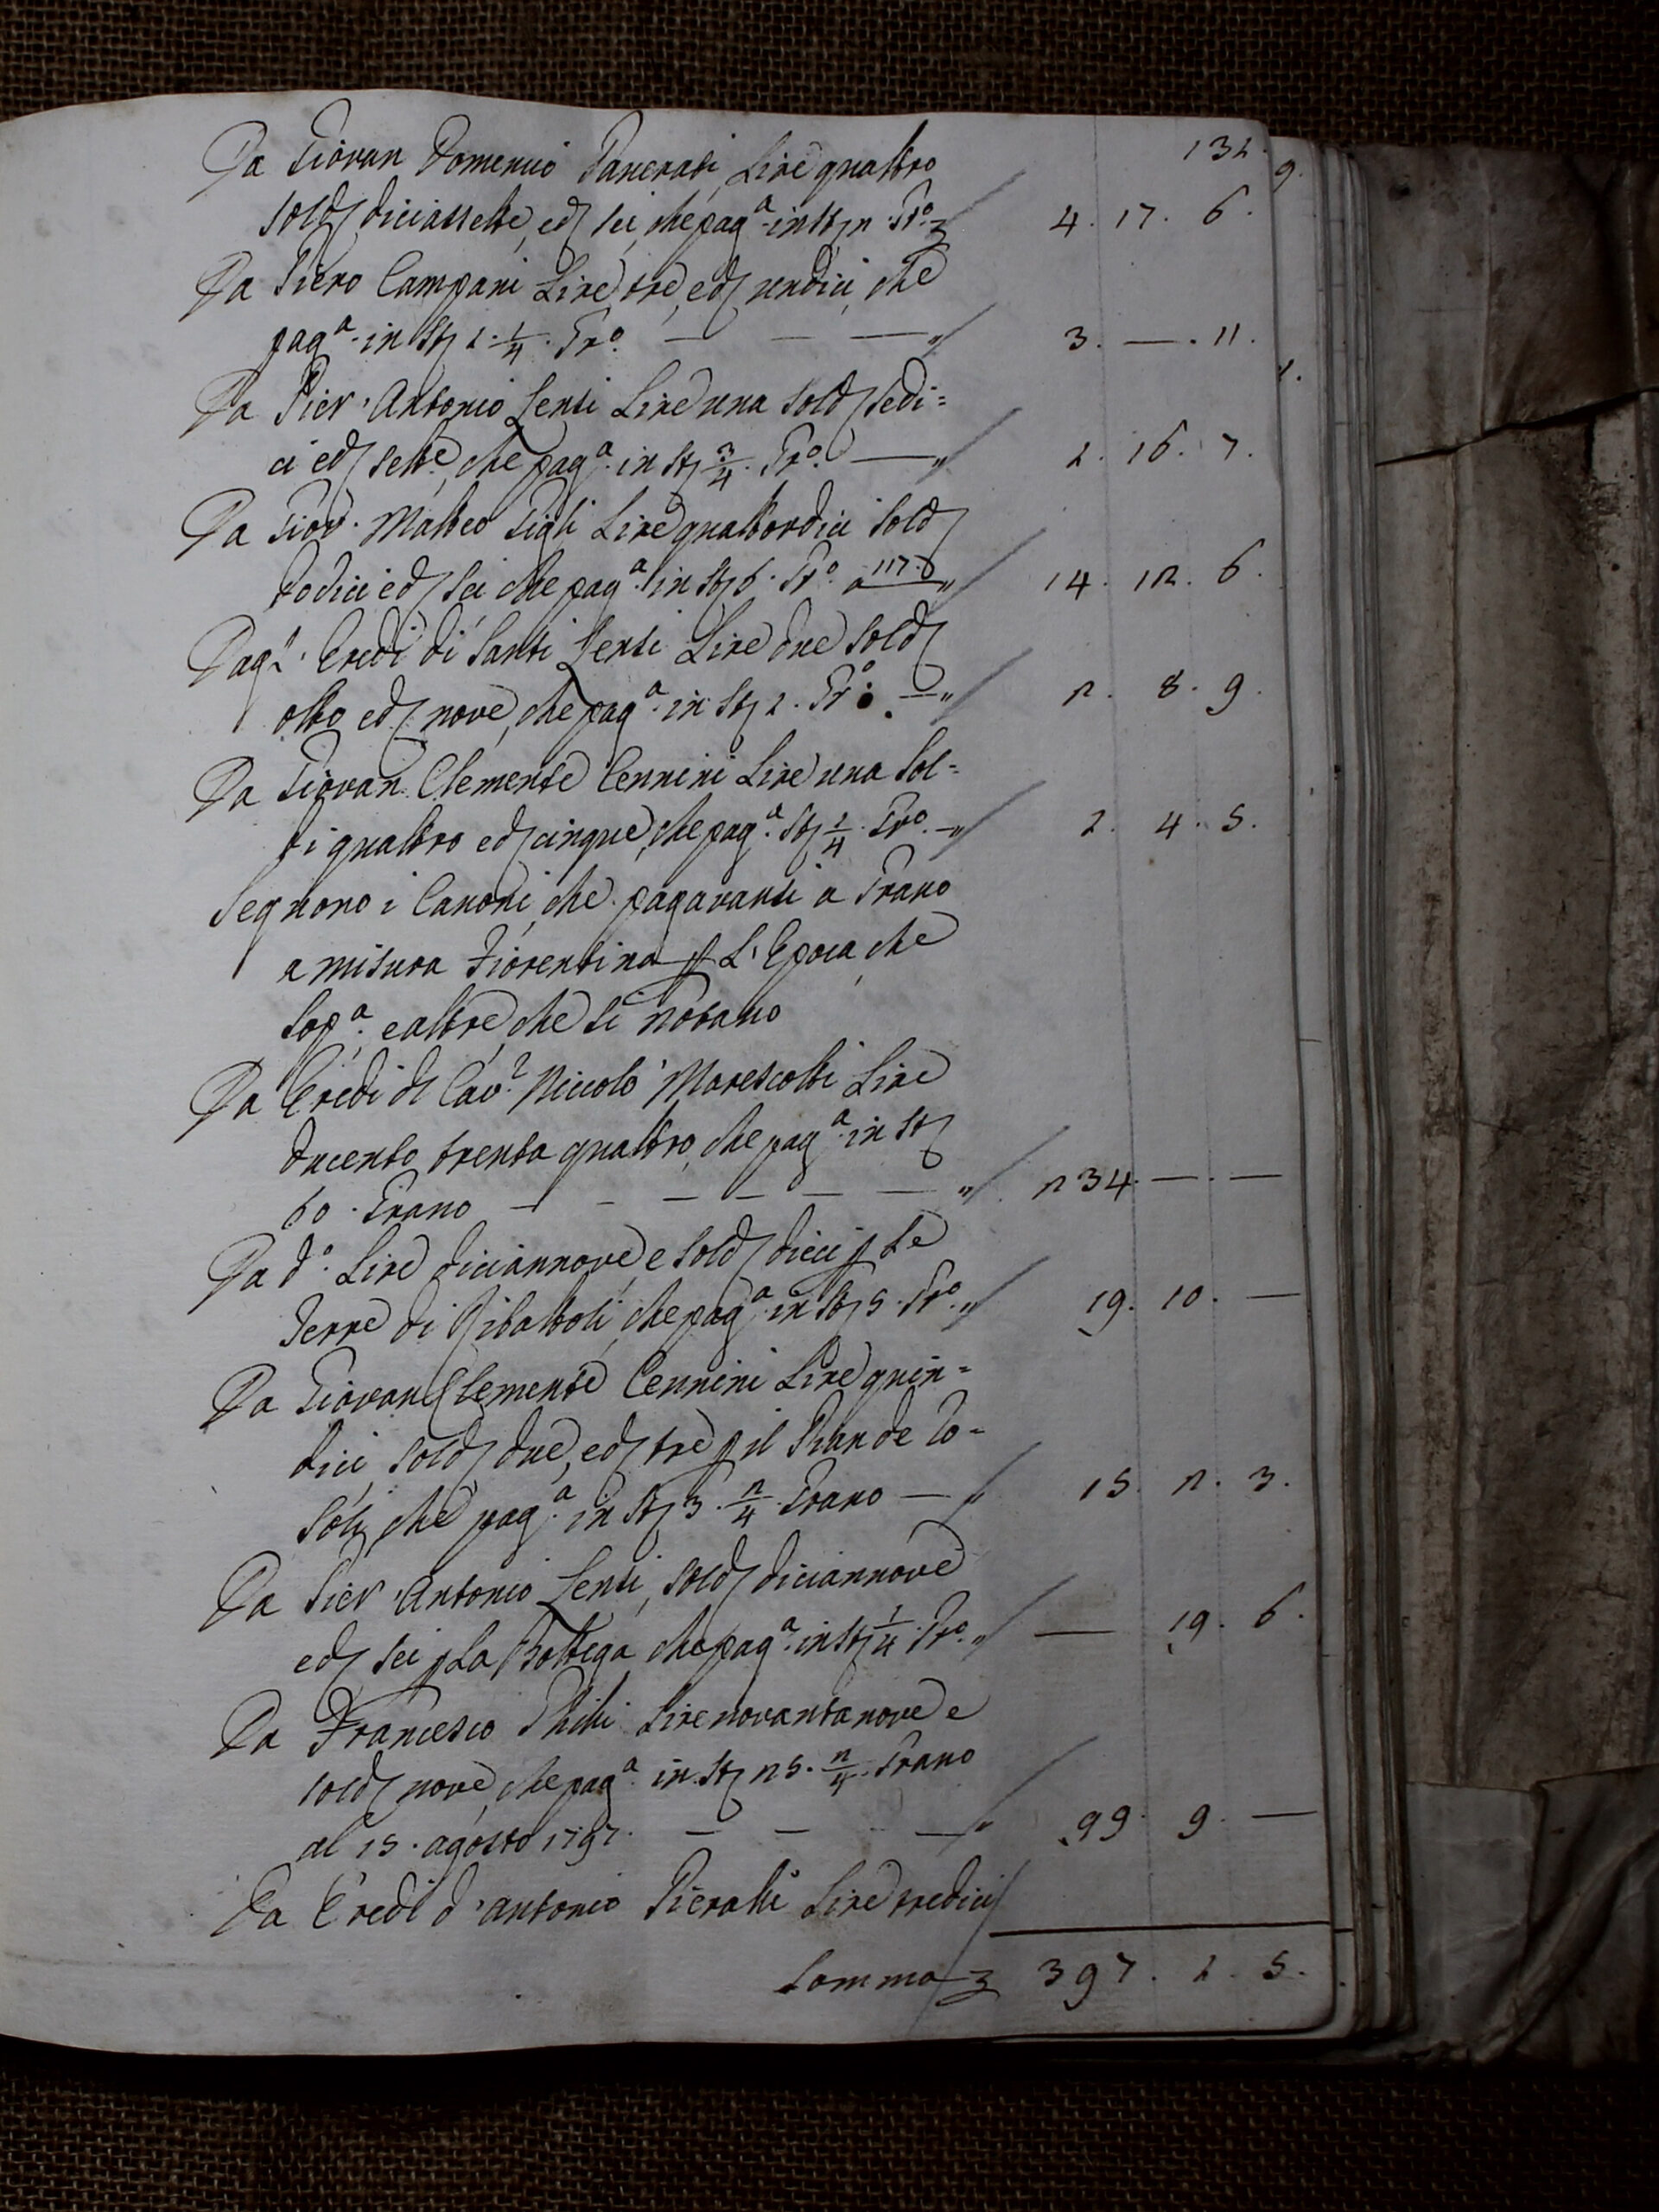 131.
Da Giovan Domenico Pancrasi Lire quattro
sold diciassette, e d sei, che pag.ª in St 2 Gr.º 4. 17. 6.
Da Piero Campani Lire tre, e d undici, che
pag.ª in St 1. 1/4. Gr.º — — — " 3. — . 11.
Da Pier' Antonio Lenti Lire una sold sedi=
ci e d sette, che pag.ª in St 3/4. Gr.º — " 1. 16. 7.
Da Giov. Matteo Gigli Lire quattordici sold
dodici e d sei che pag.ª in St 6. Gr.º a 117.6 " 14. 12. 6.
Dagl' Eredi di Santi Lenti Lire due sold
otto e d nove, che pag.ª in St 1. Gr.º — " 2. 8. 9.
Da Giovan Clemente Cennini Lire una sol=
di quattro e d cinque, che pag.ª St 1/4. Gr.º — " 1. 4. 5.
Seguono i Canoni, che pagavansi a Grano
a misura Fiorentina p L'Epoca, che
sop.ª e altre, che si notano
Da Eredi d Cav.r Niccolò Marescotti Lire
ducento trenta quattro, che pag.ª in St
60. Grano — — — — — — " 234. — . —
Da d.º Lire diciannove, e sold dieci p Le
Terre di Ribattoli, che pag.ª in St 5. Gr.º " 19. 10. —
Da Giovan Clemente Cennini Lire quin=
dici sold due, e d tre p il Pian de To=
soli, che pag.ª in St 3. 2/4 Grano — " 15. 2. 3.
Da Pier' Antonio Lenti, sold diciannove
e d sei p La Bottega, che pag.ª in St 1/4. Gr.º " — 19. 6.
Da Francesco Lire novantanove e
sold nove, che pag.ª in St 25. 2/4. Grano
al 15. agosto 1797. — — — " 99. 9. —
Da Eredi d'Antonio Pieratti Lire tredici
Somma 397. 1. 5.